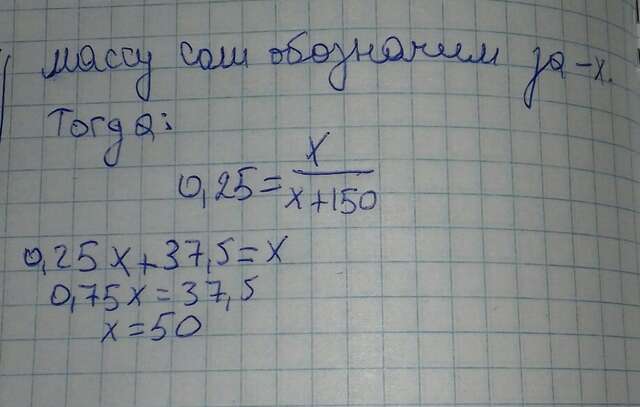 массу соли обозначим за - x.
Тогда:
0,25 = x / x+150
0,25x + 37,5 = x
0,75x = 37,5
x = 50